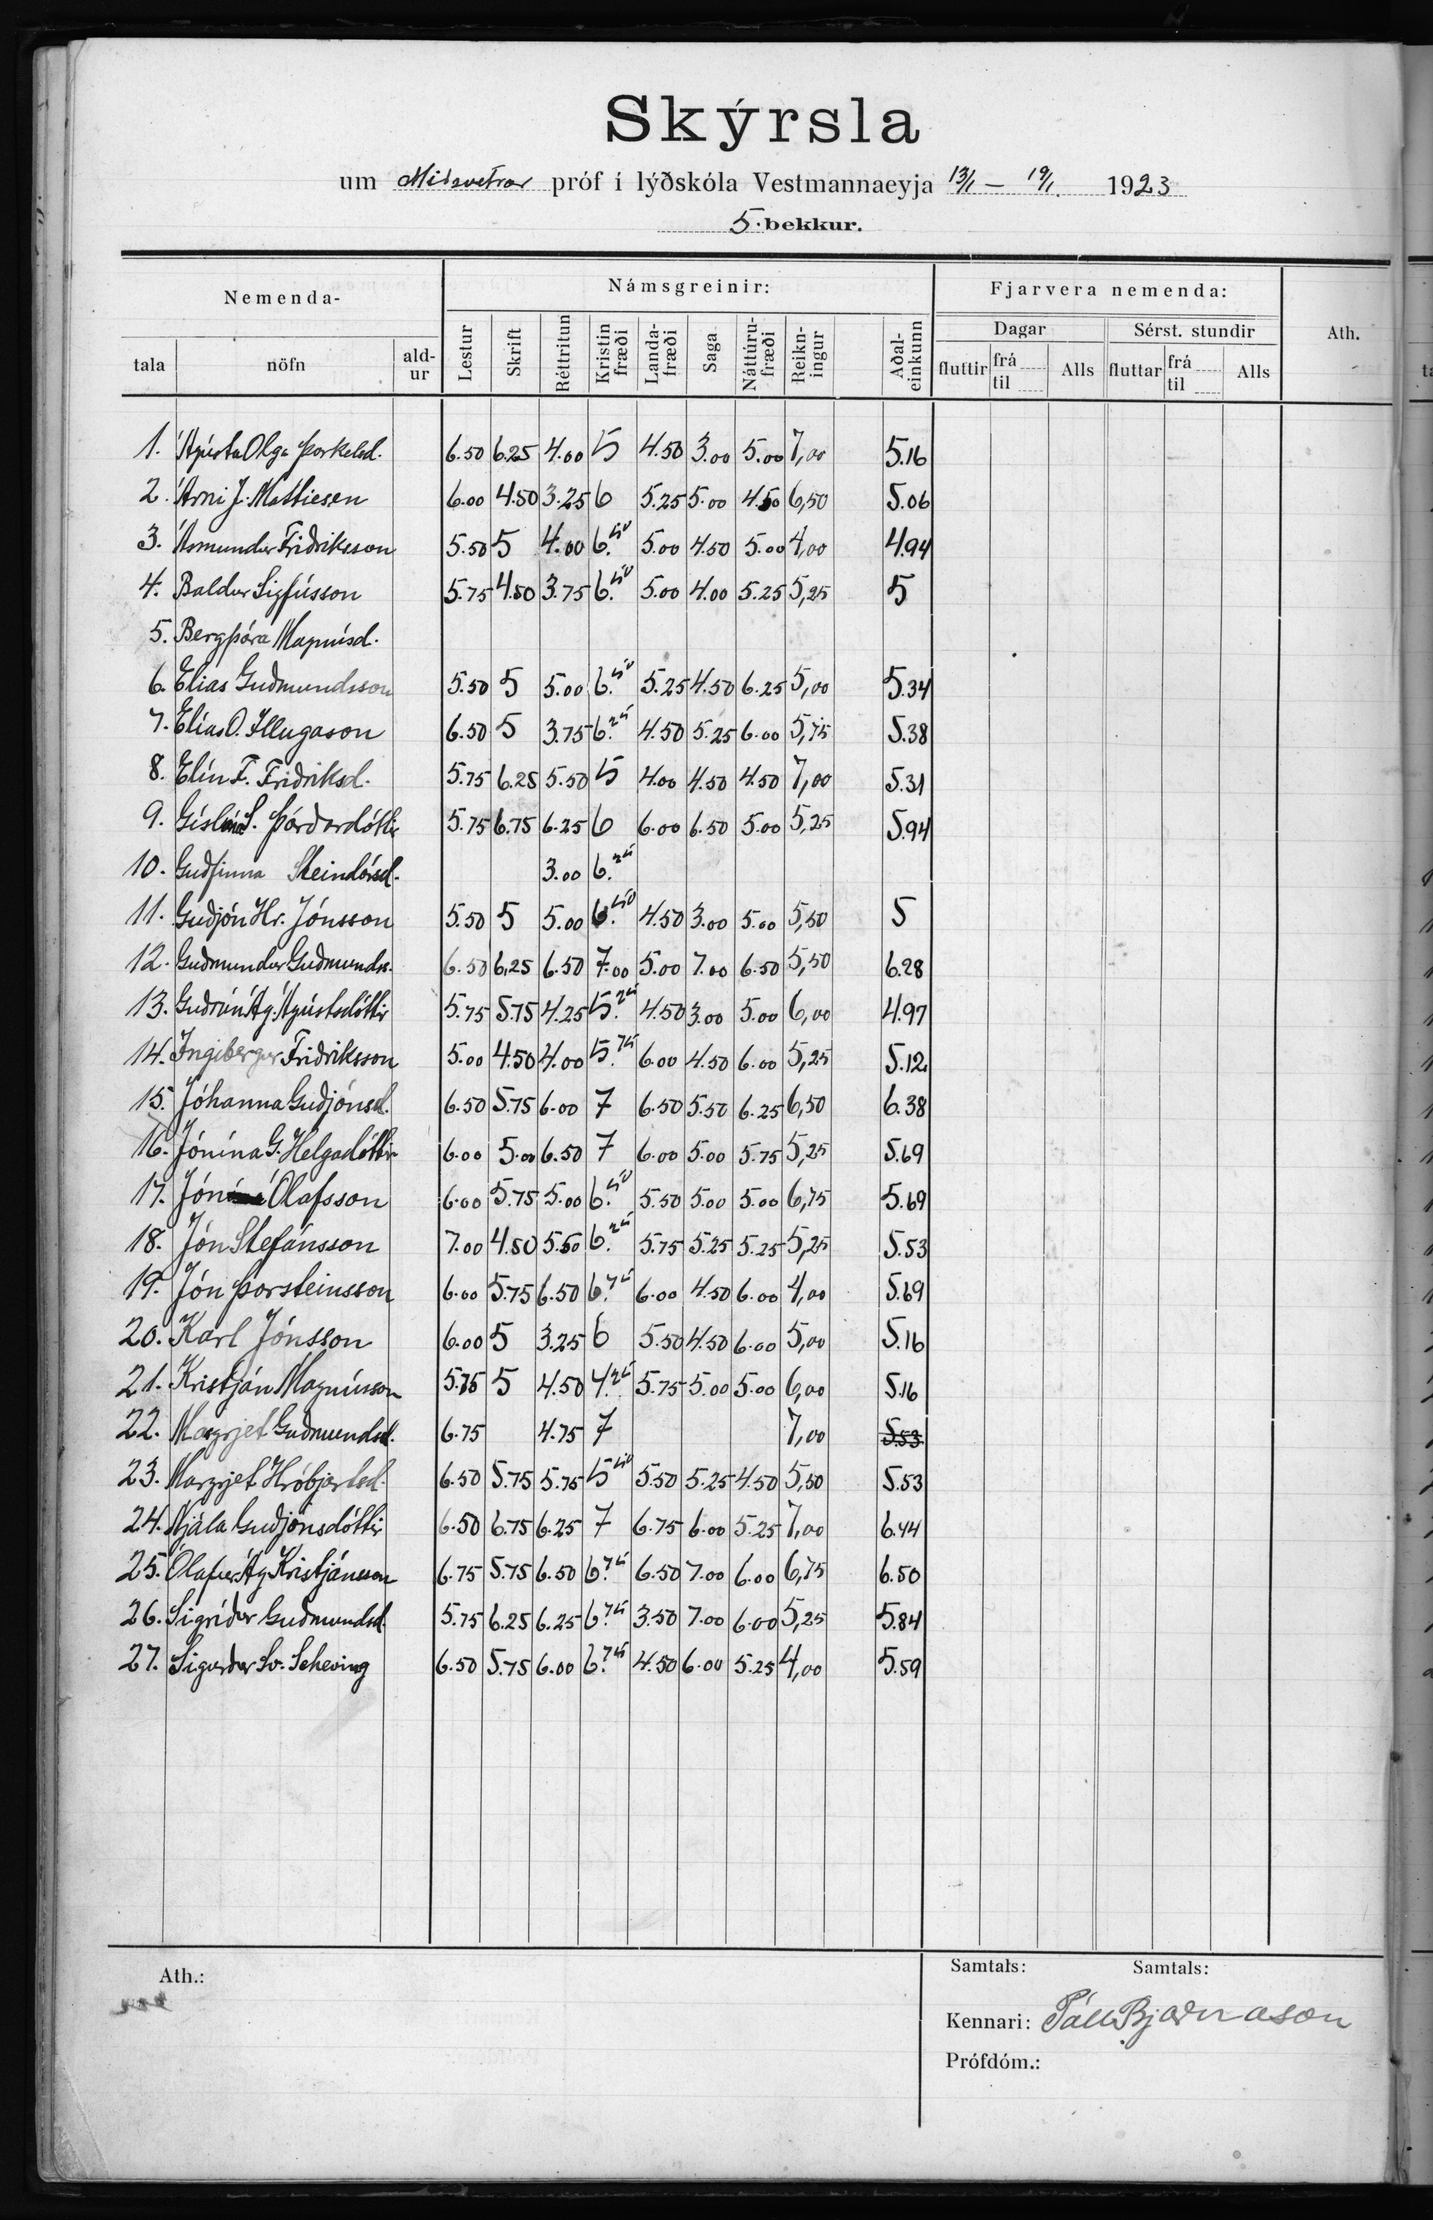 Skýrsla
um Miðsvetrar próf í lýðskóla Vestmannaeyja 13/1 – 19/1. 1923
5. bekkur.
Nemenda- Námsgreinir: Fjarvera nemenda: Ath.
tala nöfn ald-ur Lestur Skrift Réttritun Kristin fræði Landa-fræði Saga Náttúru-fræði Reikn-ingur Aðal-einkunn Dagar Sérst. stundir
fluttir frá til Alls fluttar frá til Alls
1. Ágústa Olga Þorkelsd. 6.50 6.25 4.00 5 4.50 3.00 5.00 7,00 5.16
2. Árni J. Mathiesen 6.00 4.50 3.25 6 5.25 5.00 4.50 6,50 5.06
3. Ásmundur Friðriksson 5.50 5 4.00 6.50 5.00 4.50 5.00 4,00 4.94
4. Baldur Sigfússon 5.75 4.50 3.75 6.50 5.00 4.00 5.25 5,25 5
5. Bergþóra Magnúsd.
6. Elías Guðmundsson 5.50 5 5.00 6.50 5.25 4.50 6.25 5,00 5.34
7. Elías O. Illugason 6.50 5 3.75 6.25 4.50 5.25 6.00 5,75 5.38
8. Elín F. Friðriksd. 5.75 6.25 5.50 5 4.00 4.50 4.50 7,00 5.31
9. Gíslína S. Þórðardóttir 5.75 6.75 6.25 6 6.00 6.50 5.00 5,25 5.94
10. Guðfinna Steindórsd. 3.00 6.25
11. Guðjón Hr. Jónsson 5.50 5 5.00 6.50 4.50 3.00 5.00 5,50 5
12. Guðmundur Guðmunds. 6.50 6,25 6.50 7.00 5.00 7.00 6.50 5,50 6.28
13. Guðrún Ág. Ágústsdóttir 5.75 5.75 4.25 5.25 4.50 3.00 5.00 6,00 4.97
14. Ingibergur Friðriksson 5.00 4.50 4.00 5.75 6.00 4.50 6.00 5,25 5.12
15. Jóhanna Guðjónsd. 6.50 5.75 6.00 7 6.50 5.50 6.25 6,50 6.38
16. Jónína G. Helgadóttir 6.00 5.00 6.50 7 6.00 5.00 5.75 5,25 5.69
17. Jón Ólafsson 6.00 5.75 5.00 6.50 5.50 5.00 5.00 6,75 5.69
18. Jón Stefánsson 7.00 4.50 5.50 6.25 5.75 5.25 5.25 5,25 5.53
19. Jón Þorsteinsson 6.00 5.75 6.50 6.75 6.00 4.50 6.00 4,00 5.69
20. Karl Jónsson 6.00 5 3.25 6 5.50 4.50 6.00 5,00 5.16
21. Kristján Magnússon 5.75 5 4.50 4.25 5.75 5.00 5.00 6,00 5.16
22. Margrjet Guðmundsd. 6.75 4.75 7 7,00 5.53
23. Margrjet Hróbjartsd. 6.50 5.75 5.75 5.50 5.50 5.25 4.50 5,50 5.53
24. Njála Guðjónsdóttir 6.50 6.75 6.25 7 6.75 6.00 5.25 7,00 6.44
25. Ólafur Ág Kristjánsson 6.75 5.75 6.50 6.75 6.50 7.00 6.00 6,75 6.50
26. Sigríður Guðmundsd. 5.75 6.25 6.25 6.75 3.50 7.00 6.00 5,25 5.84
27. Sigurður Sv. Scheving 6.50 5.75 6.00 6.75 4.50 6.00 5.25 4,00 5.59
Ath.: Samtals: Samtals:
Kennari: Páll Bjarnason
Prófdóm.: